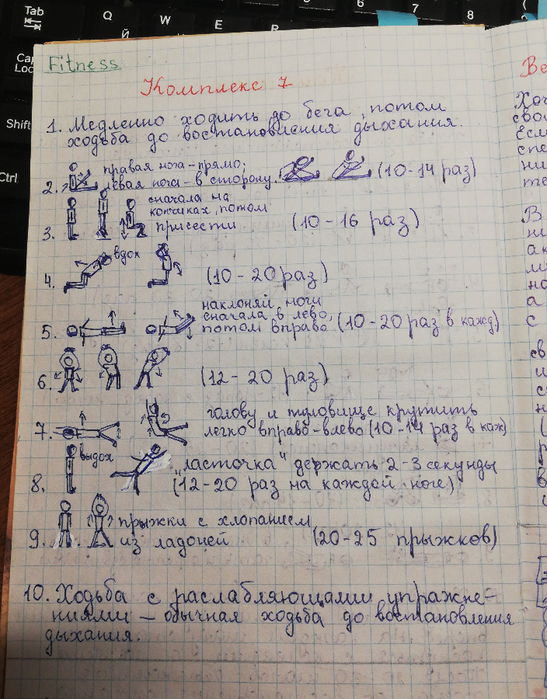 Tab
Q
W
E
R
Й
Caps
Lock
Shift
Ctrl
Fitness
Комплекс 7
1. Медленно ходить до бега, потом
ходьба до востановления дыхания.
2. правая нога-прямо;
левая нога-в сторону. (10-14 раз)
3. сначала на
носочках, потом
присести (10-16 раз)
4. вдох (10-20 раз)
5. наклоняй ноги
сначала в лево,
потом вправо (10-20 раз в кажд)
6. (12-20 раз)
7. голову и туловище крутить
легко вправо-влево (10-14 раз в каж)
8. выдох "ласточка" держать 2-3 секунды
(12-20 раз на каждой ноге)
9. прыжки с хлопанием
из ладоней (20-25 прыжков)
10. Ходьба с раслабляющами упражне=
ниями - обычная ходьба до востановления
дыхания.